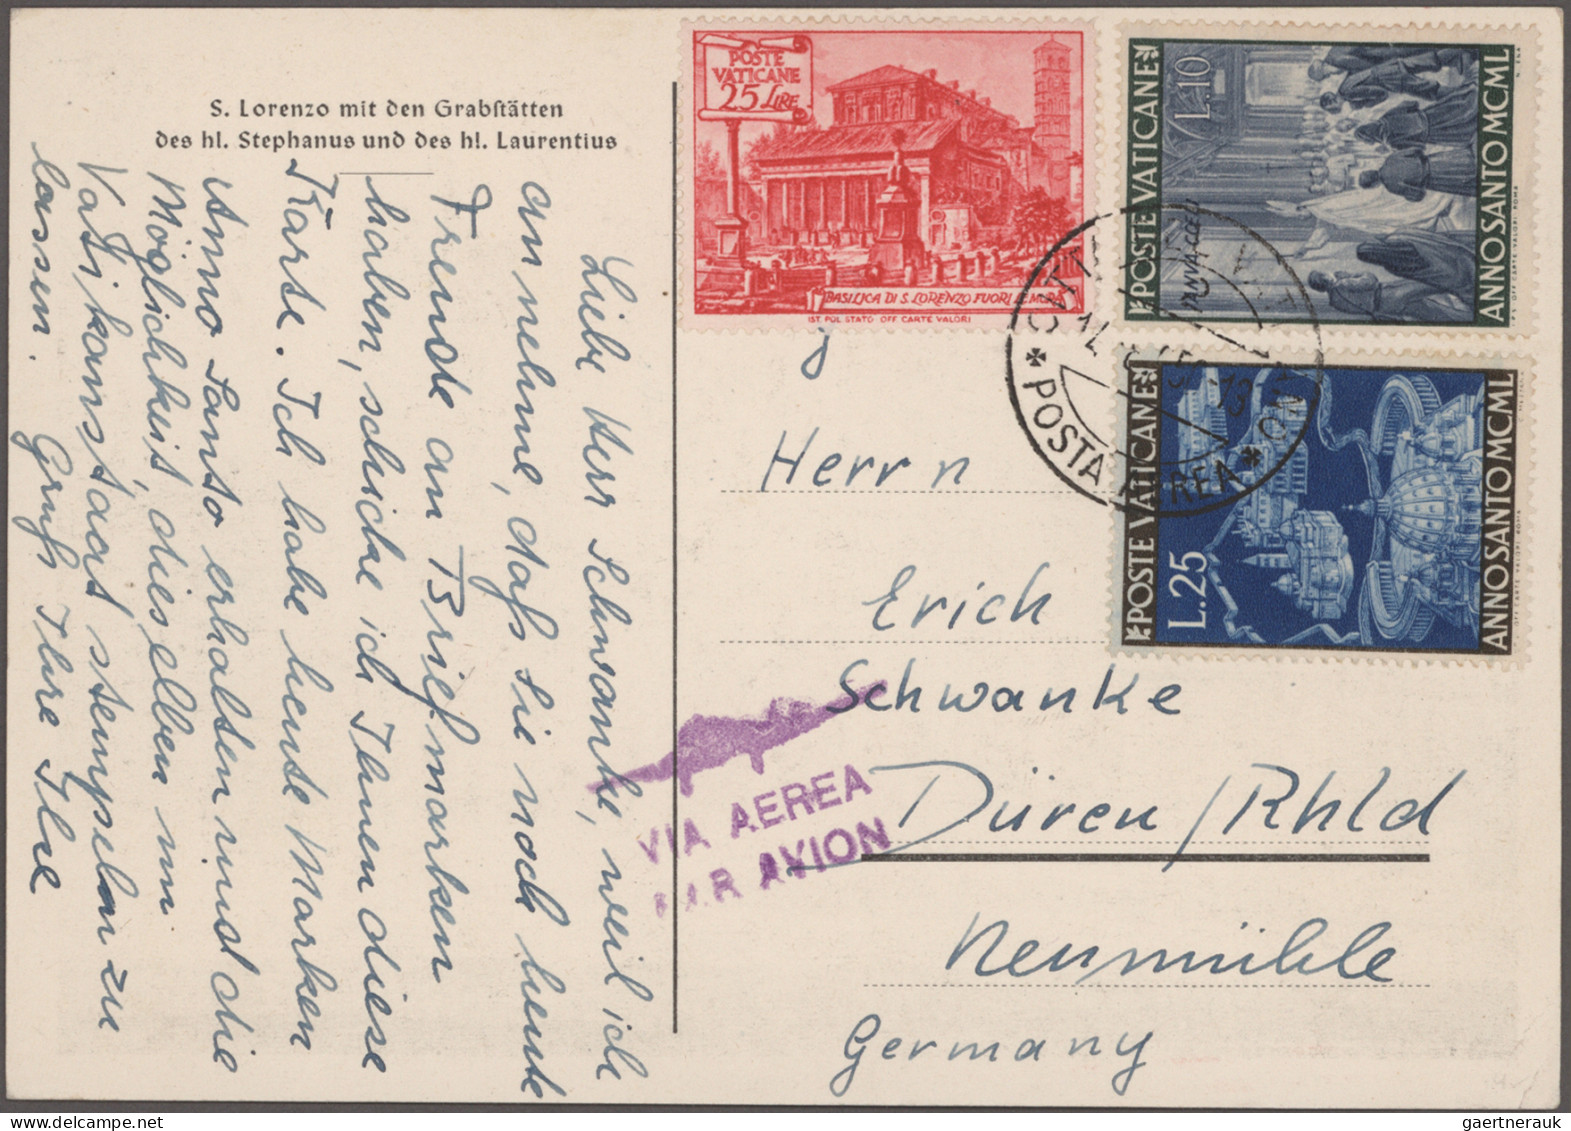 S. Lorenzo mit den Grabstätten
des hl. Stephanus und des hl. Laurentius
Liebe Herr Schwanke, weil ich
annehme, daß Sie noch heute
Freude an Briefmarken
haben, schicke ich Ihnen diese
Karte. Ich habe heute Marken
Anno Santo erhalten und die
Möglichkeit, dieselben im
Vatikanstaat stempeln zu
lassen.
Gruß Ihre Ilse
POSTE
VATICANE
25 LIRE
BASILICA DI S. LORENZO FUORI LE MURA
IST. POL. STATO OFF. CARTE VALORI
POSTE VATICANE
L.10
IANVA COELI
ANNO SANTO MCML
POSTE VATICANE
L.25
ANNO SANTO MCML
CITTÀ DEL VATICANO
POSTA AEREA
VIA AEREA
PAR AVION
Herrn
Erich
Schwanke
Düren/Rhld
Neumühle
Germany
gaertnerauk